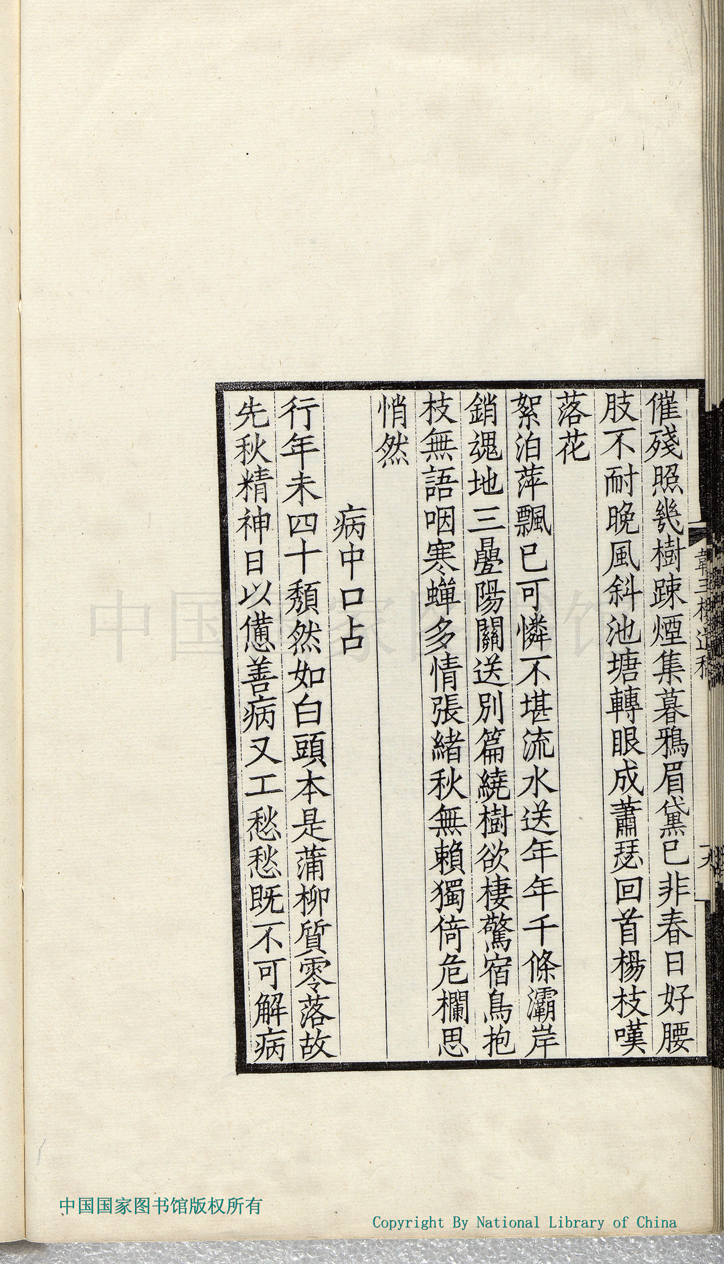 催殘照幾樹踈煙集暮鴉眉黛已非春日好腰
肢不耐晚風斜池塘轉眼成蕭瑟回首楊枝嘆
落花
絮泊萍飄已可憐不堪流水送年年千條灞岸
銷魂地三疊陽關送別篇繞樹欲棲驚宿鳥抱
枝無語咽寒蟬多情張緒秋無賴獨倚危欄思
悄然
病中口占
行年未四十頽然如白頭本是蒲柳質零落故
先秋精神日以憊善病又工愁愁既不可解病
中国国家图书馆
中国国家图书馆版权所有
Copyright By National Library of China